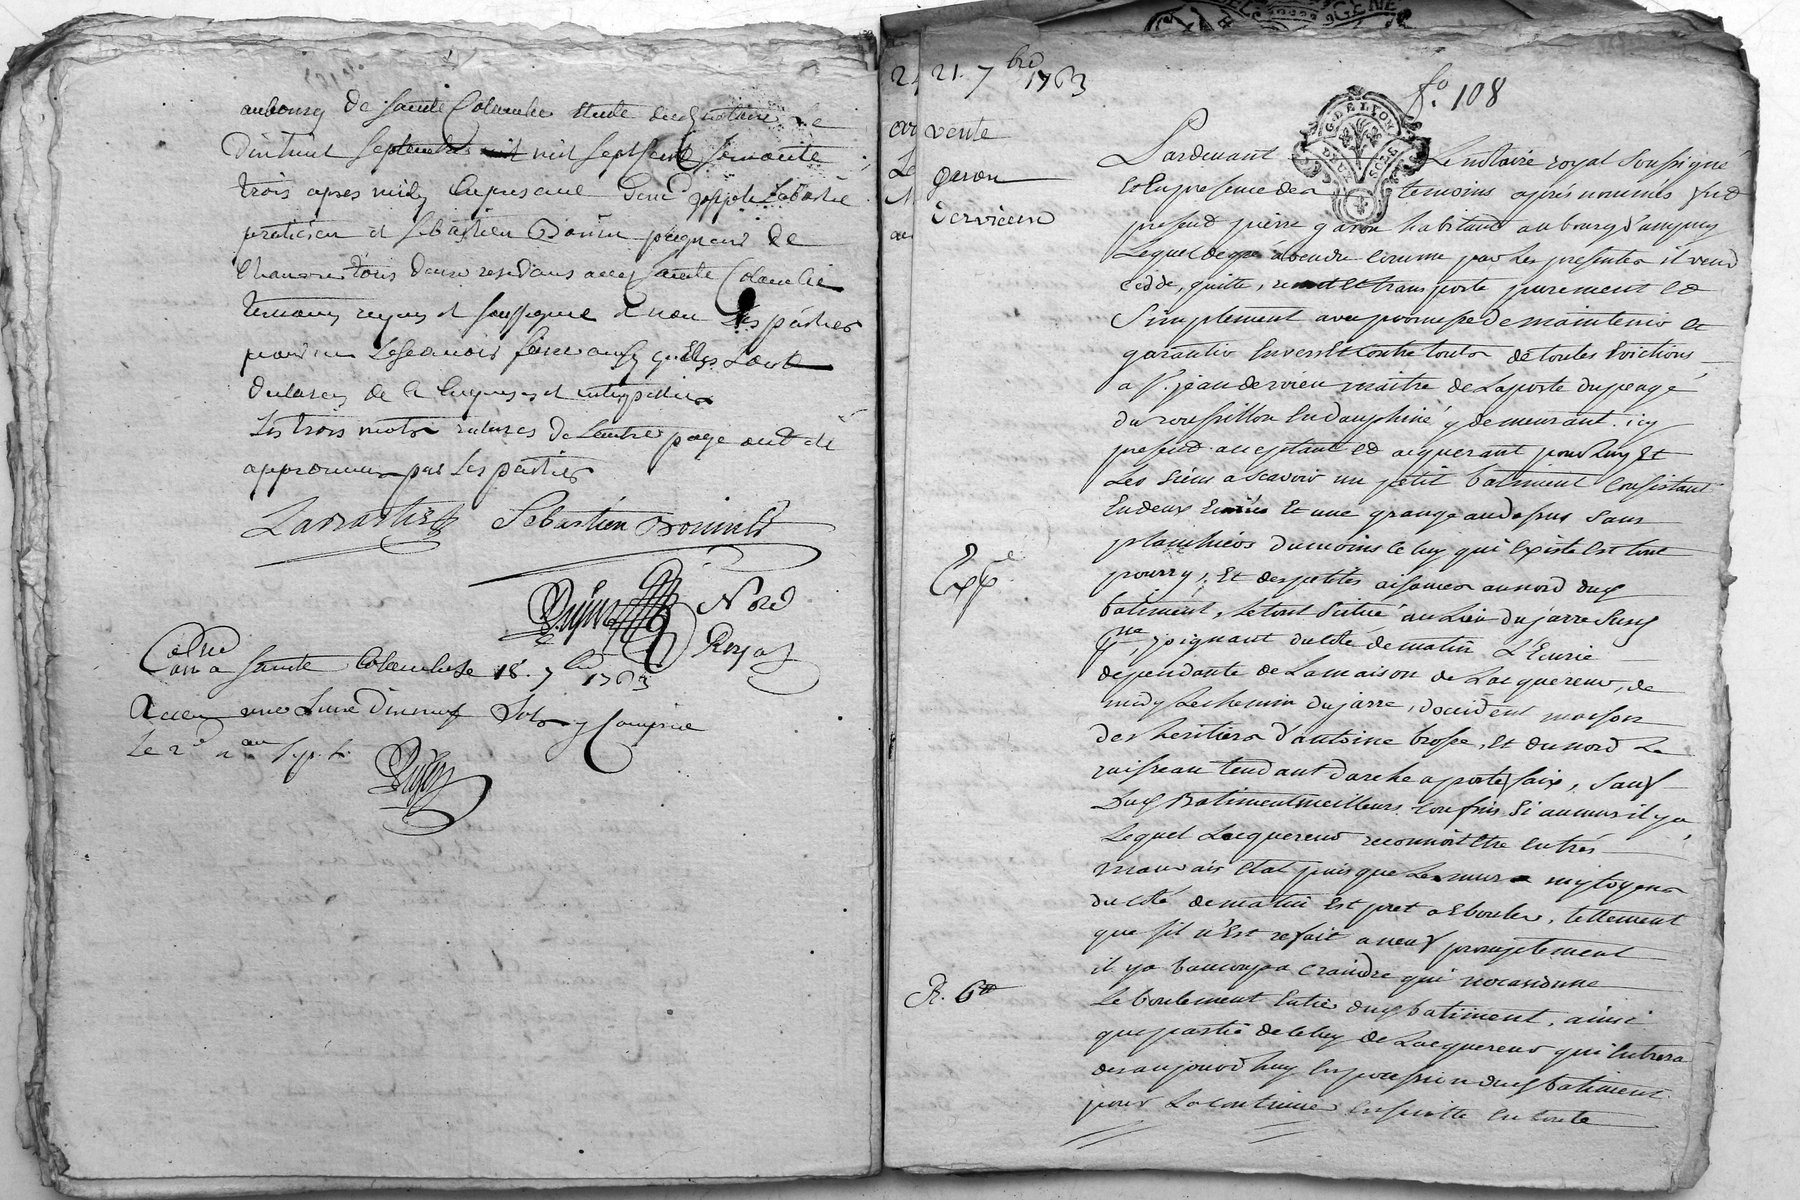 aubourg de sainte Colombe etude dud notaire Le
Dixhuit septembre mil sept cent soixante
trois apres midy En presence de
praticien et Sebastien Bonin peigneur de
Chanvre tous deux residans aud sainte Colombe
temoins requis et soussignes et non les parties
pour ne le scavoir faire ainsy qu'elles l'ont
declarés de ce enquises et interpellées
Les trois mots rature de l'autre page ont eté
approuvés par les parties
Sebastien Bonin
Nore
Royal
Colné
Con a sainte Colombe le 18. 7bre 1763
Recu une Livre Dix neuf Sols y Compris
Le
21. 7bre 1763
fo. 108
vente
garon
Dervieux
G. DE LYON
DEUX SOLS
Pardevant Le notaire royal soussigné
et En presence des temoins aprés nommés fut
present pierre garon habitant au bourg d'ampuis
Lequel de gré a vendu comme par les presentes il vend
cedde, quitte, remet et transporte purement et
simplement avec promesse de maintenir et
garantir Envers et contre toutes de toutes Evictions
a Sr. jean dervieu maitre de La poste du peage
du roussillon En dauphiné y demeurant. icy
present acceptant et acquerant pour Luy et
Les Siens a scavoir un petit batiment Consistant
En deux Ecuries Et une grange au dessus sans
planchers du moins celuy qui Existe est tout
pourry, Et des petites aisances au nord dud
batiment, Le tout situé au Lieu du jarre susd
joignant du coté de matin L'Ecurie
Expé
dependante de La maison de L'acquereur, de
midy Le chemin du jarre, d'occident maison
des heritiers d'antoine brosse, Et du nord Le
ruisseau tendant d'arche a porte faix, sauf
Dud Batiment meilleurs confins si aucuns il y a,
Lequel L'acquereur reconnoit Etre en trés
mauvais Etat puisque Le mur mytoyen
du coté de matin Est pret a Ebouler, tellement
que s'il n'Est refait a neuf promptement
il y a beaucoup a craindre qui n'ocasionne
R. 6tt
Le boulement Entier dud batiment, ainsi
que partie de celuy de L'acquereur qui Entrera
des aujourd'huy En possession dud batiment
pour La continuer Ensuitte En toute